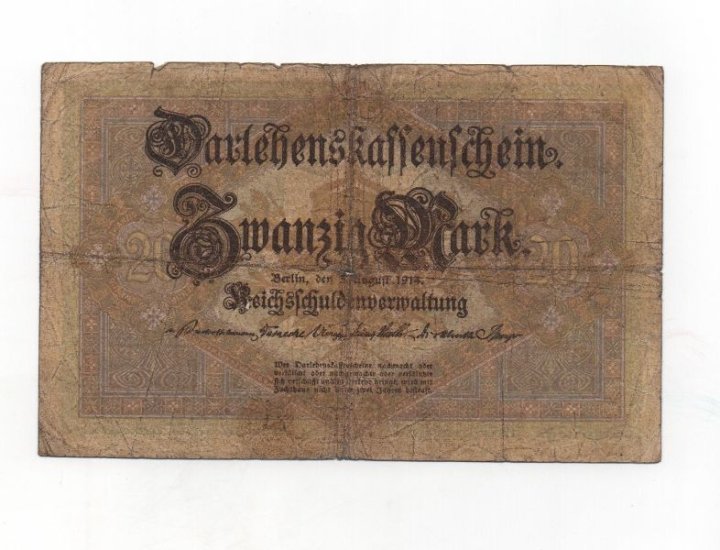 Darlehenskassenschein.
Zwanzig Mark.
20 20
Berlin, den 5. August 1914.
Reichsschuldenverwaltung
Wer Darlehnskassenscheine nachmacht oder
verfälscht oder nachgemachte oder verfälschte
sich verschafft und in Verkehr bringt, wird mit
Zuchthaus nicht unter zwei Jahren bestraft.